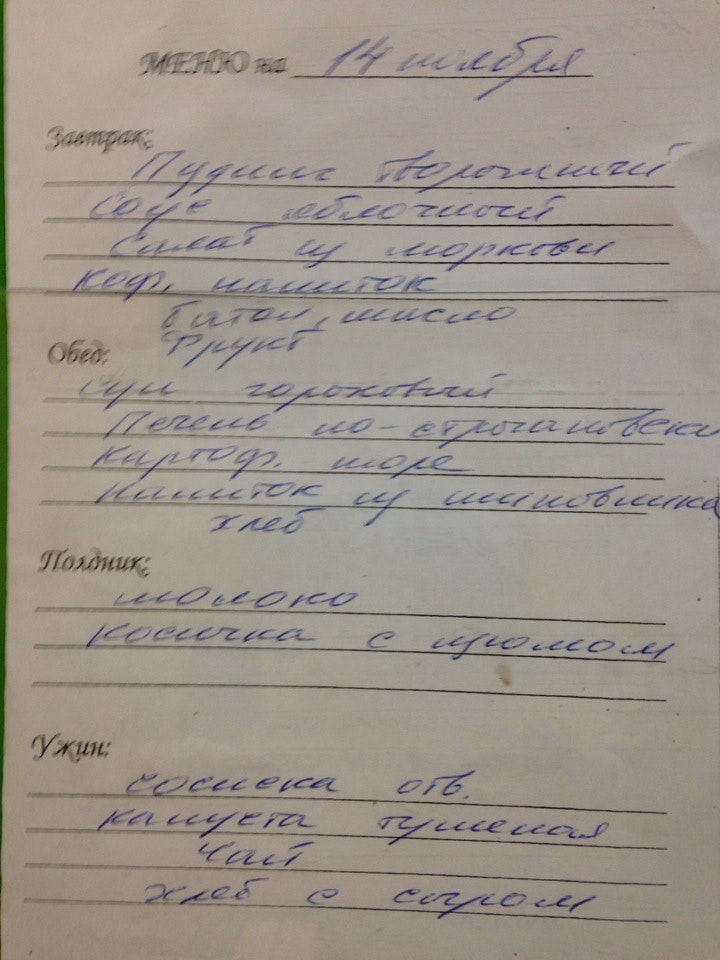 МЕНЮ на 14 ноября
Завтрак:
Пудинг творожный
Соус яблочный
Салат из моркови
Коф. напиток
Батон, масло
Фрукт
Обед:
Суп гороховый
Печень по-строгановски
Картоф. пюре
Напиток из шиповника
хлеб
Полдник:
молоко
косичка с изюмом
Ужин:
сосиска отв.
капуста тушеная
Чай
хлеб с сыром